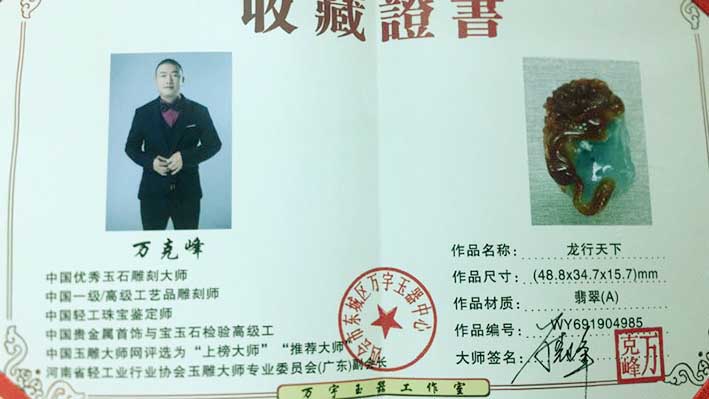 收藏證書
万克峰
中国优秀玉石雕刻大师
中国一级/高级工艺品雕刻师
中国轻工珠宝鉴定师
中国贵金属首饰与宝玉石检验高级工
中国玉雕大师网评选为“上榜大师”“推荐大师”
河南省轻工业行业协会玉雕大师专业委员会(广东)副会长
作品名称: 龙行天下
作品尺寸: (48.8x34.7x15.7)mm
作品材质: 翡翠(A)
作品编号: WY691904985
大师签名:
万克峰
会市东城区万宇玉器中心
万宇玉器工作室